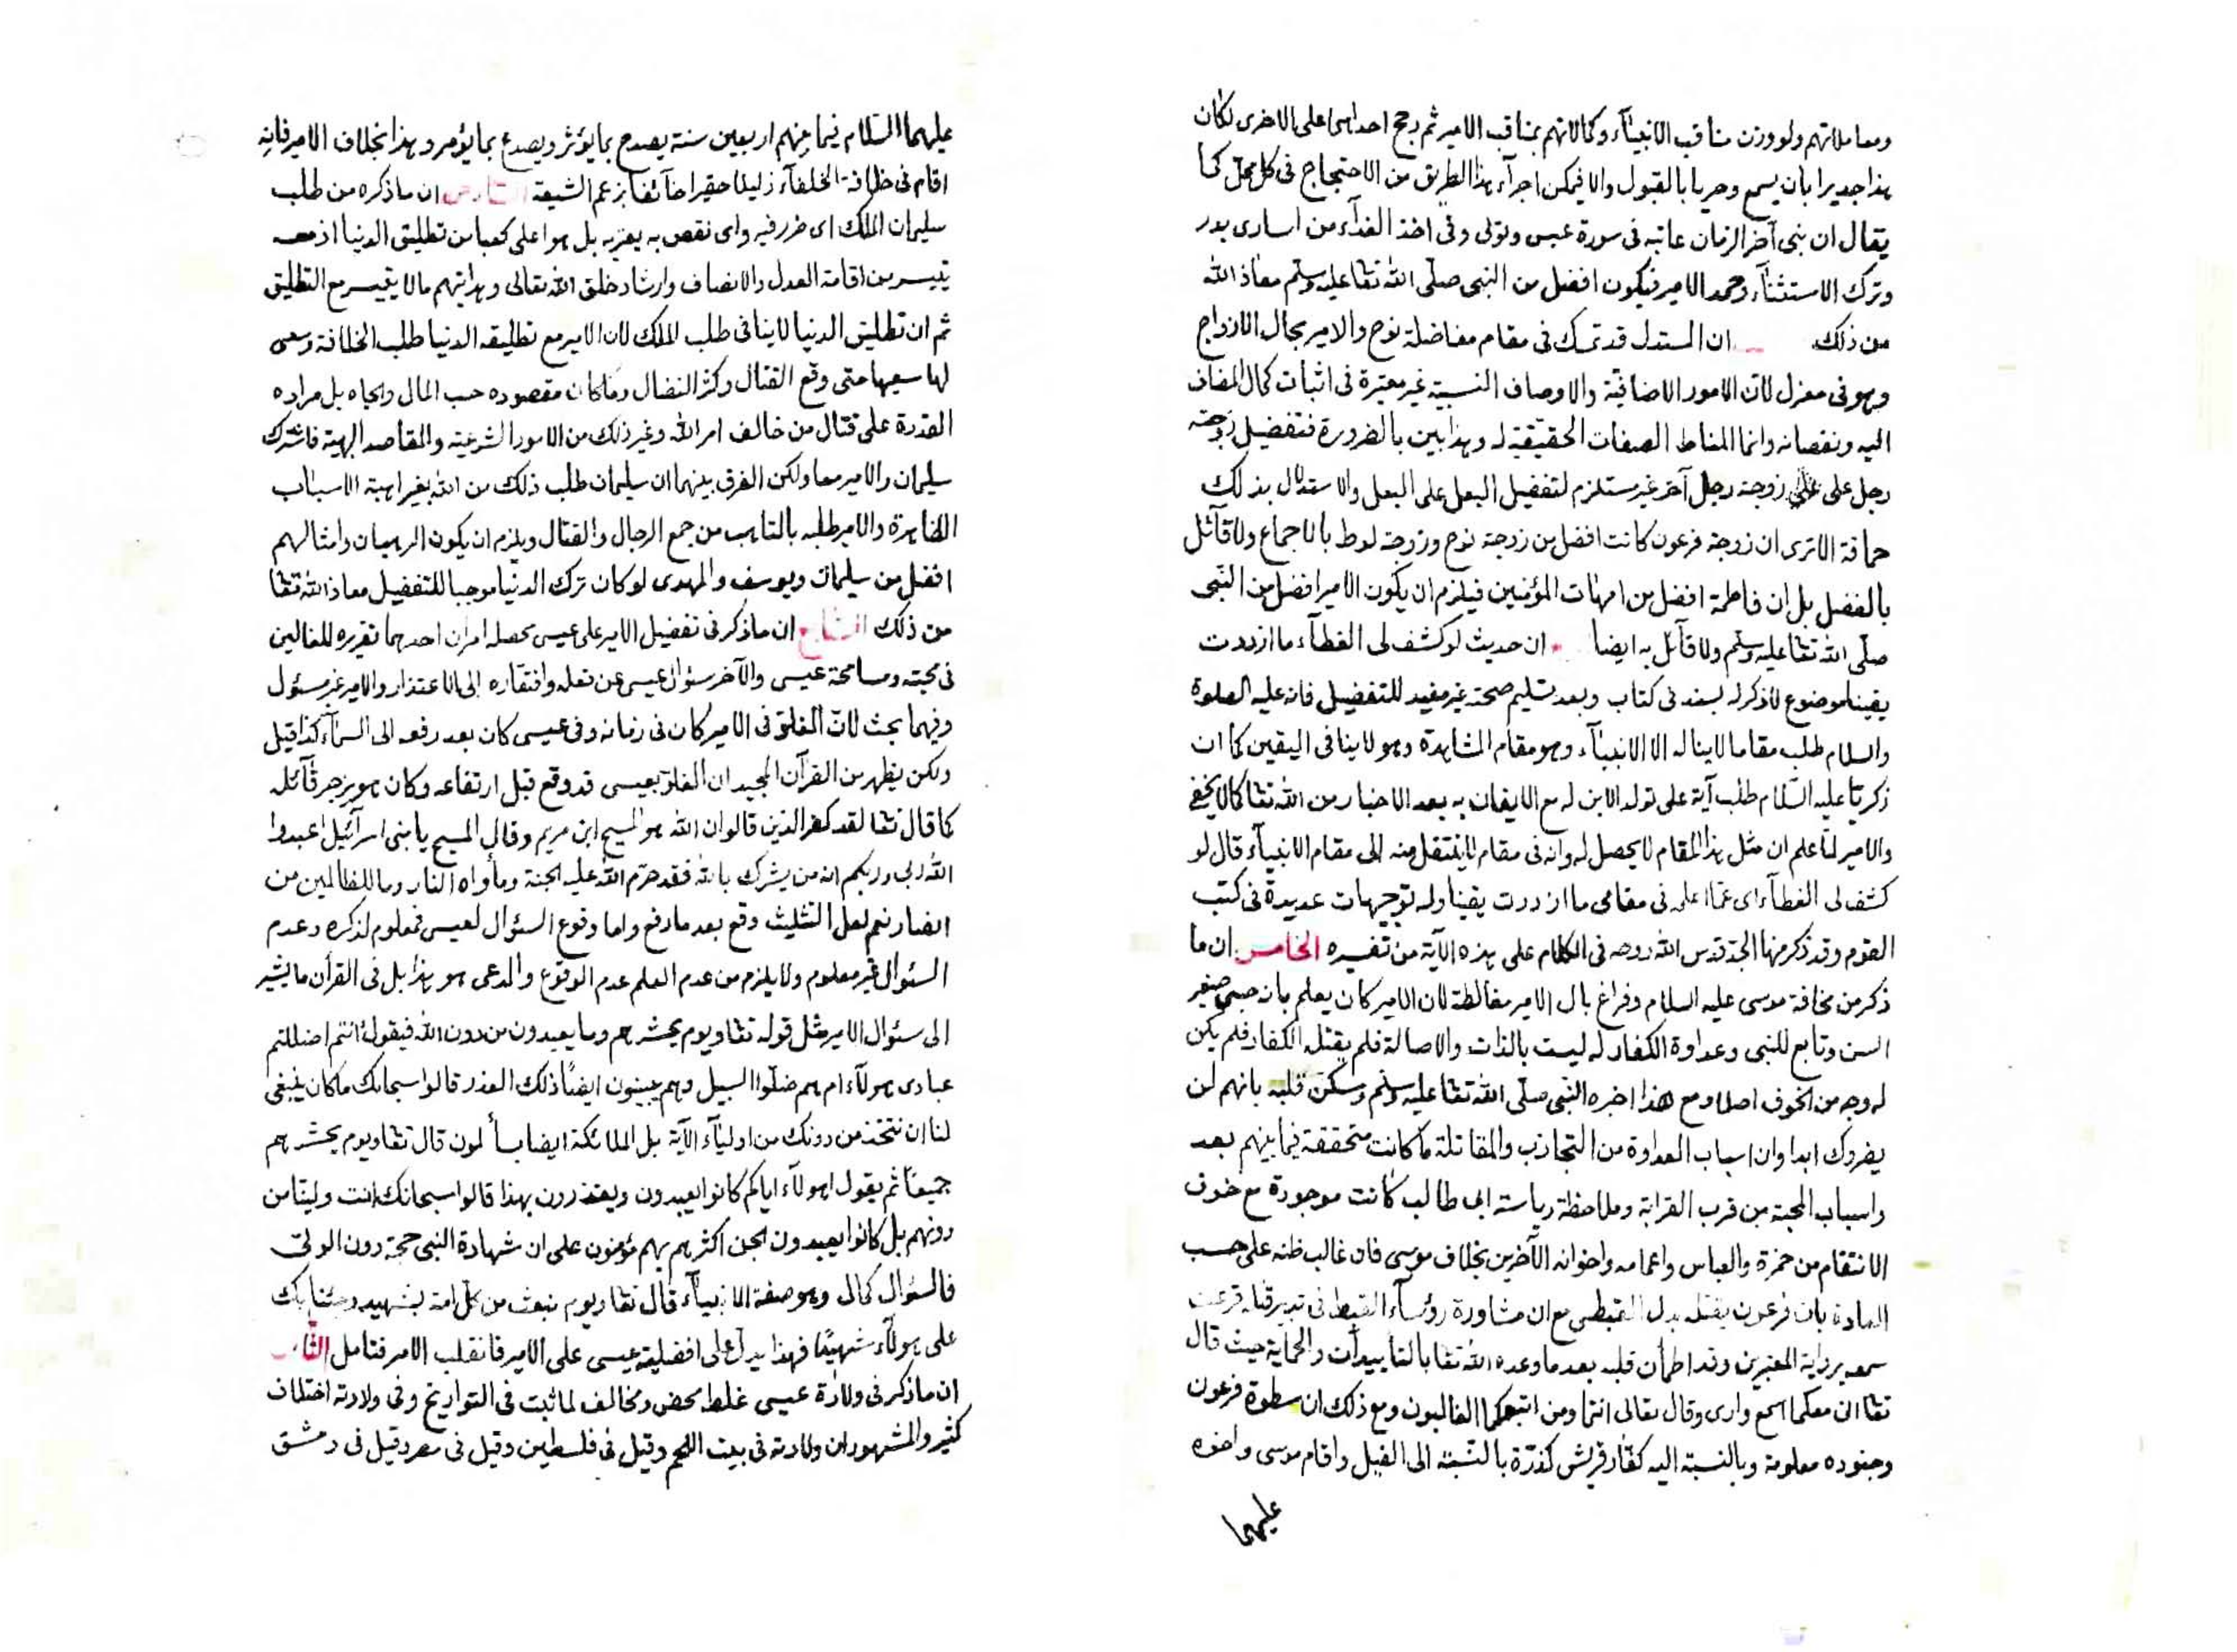 ومعاملاتهم ولو وزن مناقب الانبيآء وكمالاتهم بمناقب الامير ثم رجح احداهما على الاخرى لكان
هذا جديرا بان يسمع وحريا بالقبول والا فيمكن اجرآء هذا الطريق من الاحتجاج فى كل محل كما
يقال ان نبى آخر الزمان عاتبه فى سورة عبس وتولى وفى اخذ الفدآء من اسارى بدر
وترك الاستثنآء وحمد الامير فيكون افضل من النبى صلّى الله تعا عليه وسلم معاذ الله
من ذلك ان المستدل قد تمسك فى مقام مفاضلة نوح والامير بحال الازواج
وهو فى معزل لان الامور الاضافية والاوصاف النسبية غير معتبرة فى اثبات كمال المضاف
اليه ونقصانه وانما المناط الصفات الحقيقية له وهذا بين بالضرورة فتفضيل زوجة
رجل على زوجة رجل آخر غير مستلزم لتفضيل البعل على البعل والاستدلال بذلك
حماقة الا ترى ان زوجة فرعون كانت افضل من زوجة نوح وزوجة لوط بالاجماع ولا قآئل
بالفضل بل ان فاطمة افضل من امهات المؤمنين فيلزم ان يكون الامير افضل من النبى
صلّى الله تعا عليه وسلم ولا قآئل به ايضا ان حديث لو كشف لى الغطآء ما ازددت
يقينا موضوع لا ذكر له بسند فى كتاب وبعد تسليم صحته غير مفيد للتفضيل فانه عليه الصلوة
والسلام طلب مقاما لا يناله الا الانبيآء وهو مقام المشاهدة وهو لا ينافى اليقين كما ان
زكريا عليه السّلام طلب آية على تولد الابن له مع الايقان به بعد الاخبار من الله تعا كما لا يخفى
والامير لما علم ان مثل هذا المقام لا يحصل له وانه فى مقام لا ينتقل منه الى مقام الانبيآء قال لو
كشف لى الغطآء اى عمّا اعلم فى مقامى ما ازددت يقينا وله توجيهات عديدة فى كتب
القوم وقد ذكر منها الجد قدس الله روحه فى الكلام على هذه الآية من تفسيره الخامس ان ما
ذكر من مخافة موسى عليه السلام وفراغ بال الامير مغالطة لان الامير كان يعلم بانه صبى صغير
السن وتابع للنبى وعداوة الكفار له ليست بالذات والاصالة فلم يقتله الكفار فلم يكن
له وجه من الخوف اصلا ومع هذا اخبره النبى صلّى الله تعا عليه وسلم وسكّن قلبه بانهم لن
يضروك ابدا وان اسباب العداوة من التجاذب والمقاتلة ما كانت متحققة فيما بينهم بعد
واسباب المحبة من قرب القرابة وملاحظة رياسة ابى طالب كانت موجودة مع خوف
الانتقام من حمزة والعباس واعمامه واخوانه الآخرين بخلاف موسى فان غالب ظنه على حسب
العادة بان فرعون يقتله بدل القبطى مع ان مشاورة رؤسآء القبط فى تدبير قتله قرعت
سمعه برواية المعتبرين وقد اطمأن قلبه بعد ما وعده الله تعا بالتأييدات والحماية حيث قال
تعا انى معكما اسمع وارى وقال تعالى انتما ومن اتبعكما الغالبون ومع ذلك ان سطوة فرعون
وجنوده معلومة وبالنسبة اليه كفار قريش كذرّة بالنسبة الى الفيل واقام موسى واخوه
عليهما
عليهما السّلام فيما بينهم اربعين سنة يصدع بما يؤثر ويصدع بما يؤمر وهذا بخلاف الامير فانه
اقام فى خلافة الخلفآء ذليلا حقيرا خآئفا بزعم الشيعة ان ما ذكره من طلب
سليمان الملك اى ضرر فيه واى نقص به يعتريه بل هو اعلى كعبا من تطليق الدنيا اذ معه
تيسر من اقامة العدل والانصاف وارشاد خلق الله تعالى وهدايتهم ما لا يتيسر مع التطليق
ثم ان تطليق الدنيا لا ينافى طلب الملك لان الامير مع تطليقه الدنيا طلب الخلافة وسعى
لها سعيها حتى وقع القتال وكثر النضال وما كان مقصوده حب المال والجاه بل مراده
القدرة على قتال من خالف امر الله وغير ذلك من الامور الشرعية والمقاصد الهية فاشترك
سليمان والامير معا ولكن الفرق بينهما ان سليمان طلب ذلك من الله بغير اهبة الاسباب
الظاهرة والامير طلبه بالتاهب من جمع الرجال والقتال ويلزم ان يكون الرهبان وامثالهم
افضل من سليمان ويوسف والمهدى لو كان ترك الدنيا موجبا للتفضيل معاذ الله تعا
من ذلك السابع ان ما ذكر فى تفضيل الامير على عيسى محصله امران احدهما تقريره للغالين
فى محبته ومسامحة عيسى والآخر سؤال عيسى عن فعله وافتقاره الى الاعتذار والامير غير مسئول
وفيهما بحث لان الغلو فى الامير كان فى زمانه وفى عيسى كان بعد رفعه الى السمآء كذا قيل
ولكن يظهر من القرآن المجيد ان الغلو بعيسى قد وقع قبل ارتفاعه وكان هو يزجر قآئله
كما قال تعا لقد كفر الذين قالوا ان الله هو المسيح ابن مريم وقال المسيح يا بنى اسرآئيل اعبدوا
الله ربى وربكم انه من يشرك بالله فقد حرّم الله عليه الجنة ومأواه النار وما للظالمين من
انصار نعم لعل التثليث وقع بعد ما رفع واما وقوع السؤال لعيسى فمعلوم لذكره وعدم
السؤال غير معلوم ولا يلزم من عدم العلم عدم الوقوع والمدعى هو هذا بل فى القرآن ما يشير
الى سئوال الامير مثل قوله تعا ويوم يحشرهم وما يعبدون من دون الله فيقول ءانتم اضللتم
عبادى هولآء ام هم ضلّوا السبيل وهم يبينون ايضًا ذلك العذر قالوا سبحانك ما كان ينبغى
لنا ان نتخذ من دونك من اوليآء الآية بل الملائكة ايضا يسألون قال تعا ويوم يحشرهم
جميعًا ثم يقول اهولآء اياكم كانوا يعبدون ويعتذرون بهذا قالوا سبحانك انت ولينا من
دونهم بل كانوا يعبدون الجن اكثرهم بهم مؤمنون على ان شهادة النبى حجة دون الولى
فالسئوال كمال وهو صفة الانبيآء قال تعا ويوم نبعث من كل امة بشهيد وجئنا بك
على هولآء شهيدًا فهذا يدل على افضلية عيسى على الامير فانقلب الامر فتامل الثامن
ان ما ذكر فى ولادة عيسى غلط محض ومخالف لما ثبت فى التواريخ وفى ولادته اختلاف
كثير والمشهور ان ولادته فى بيت اللحم وقيل فى فلسطين وقيل فى مصر وقيل فى دمشق